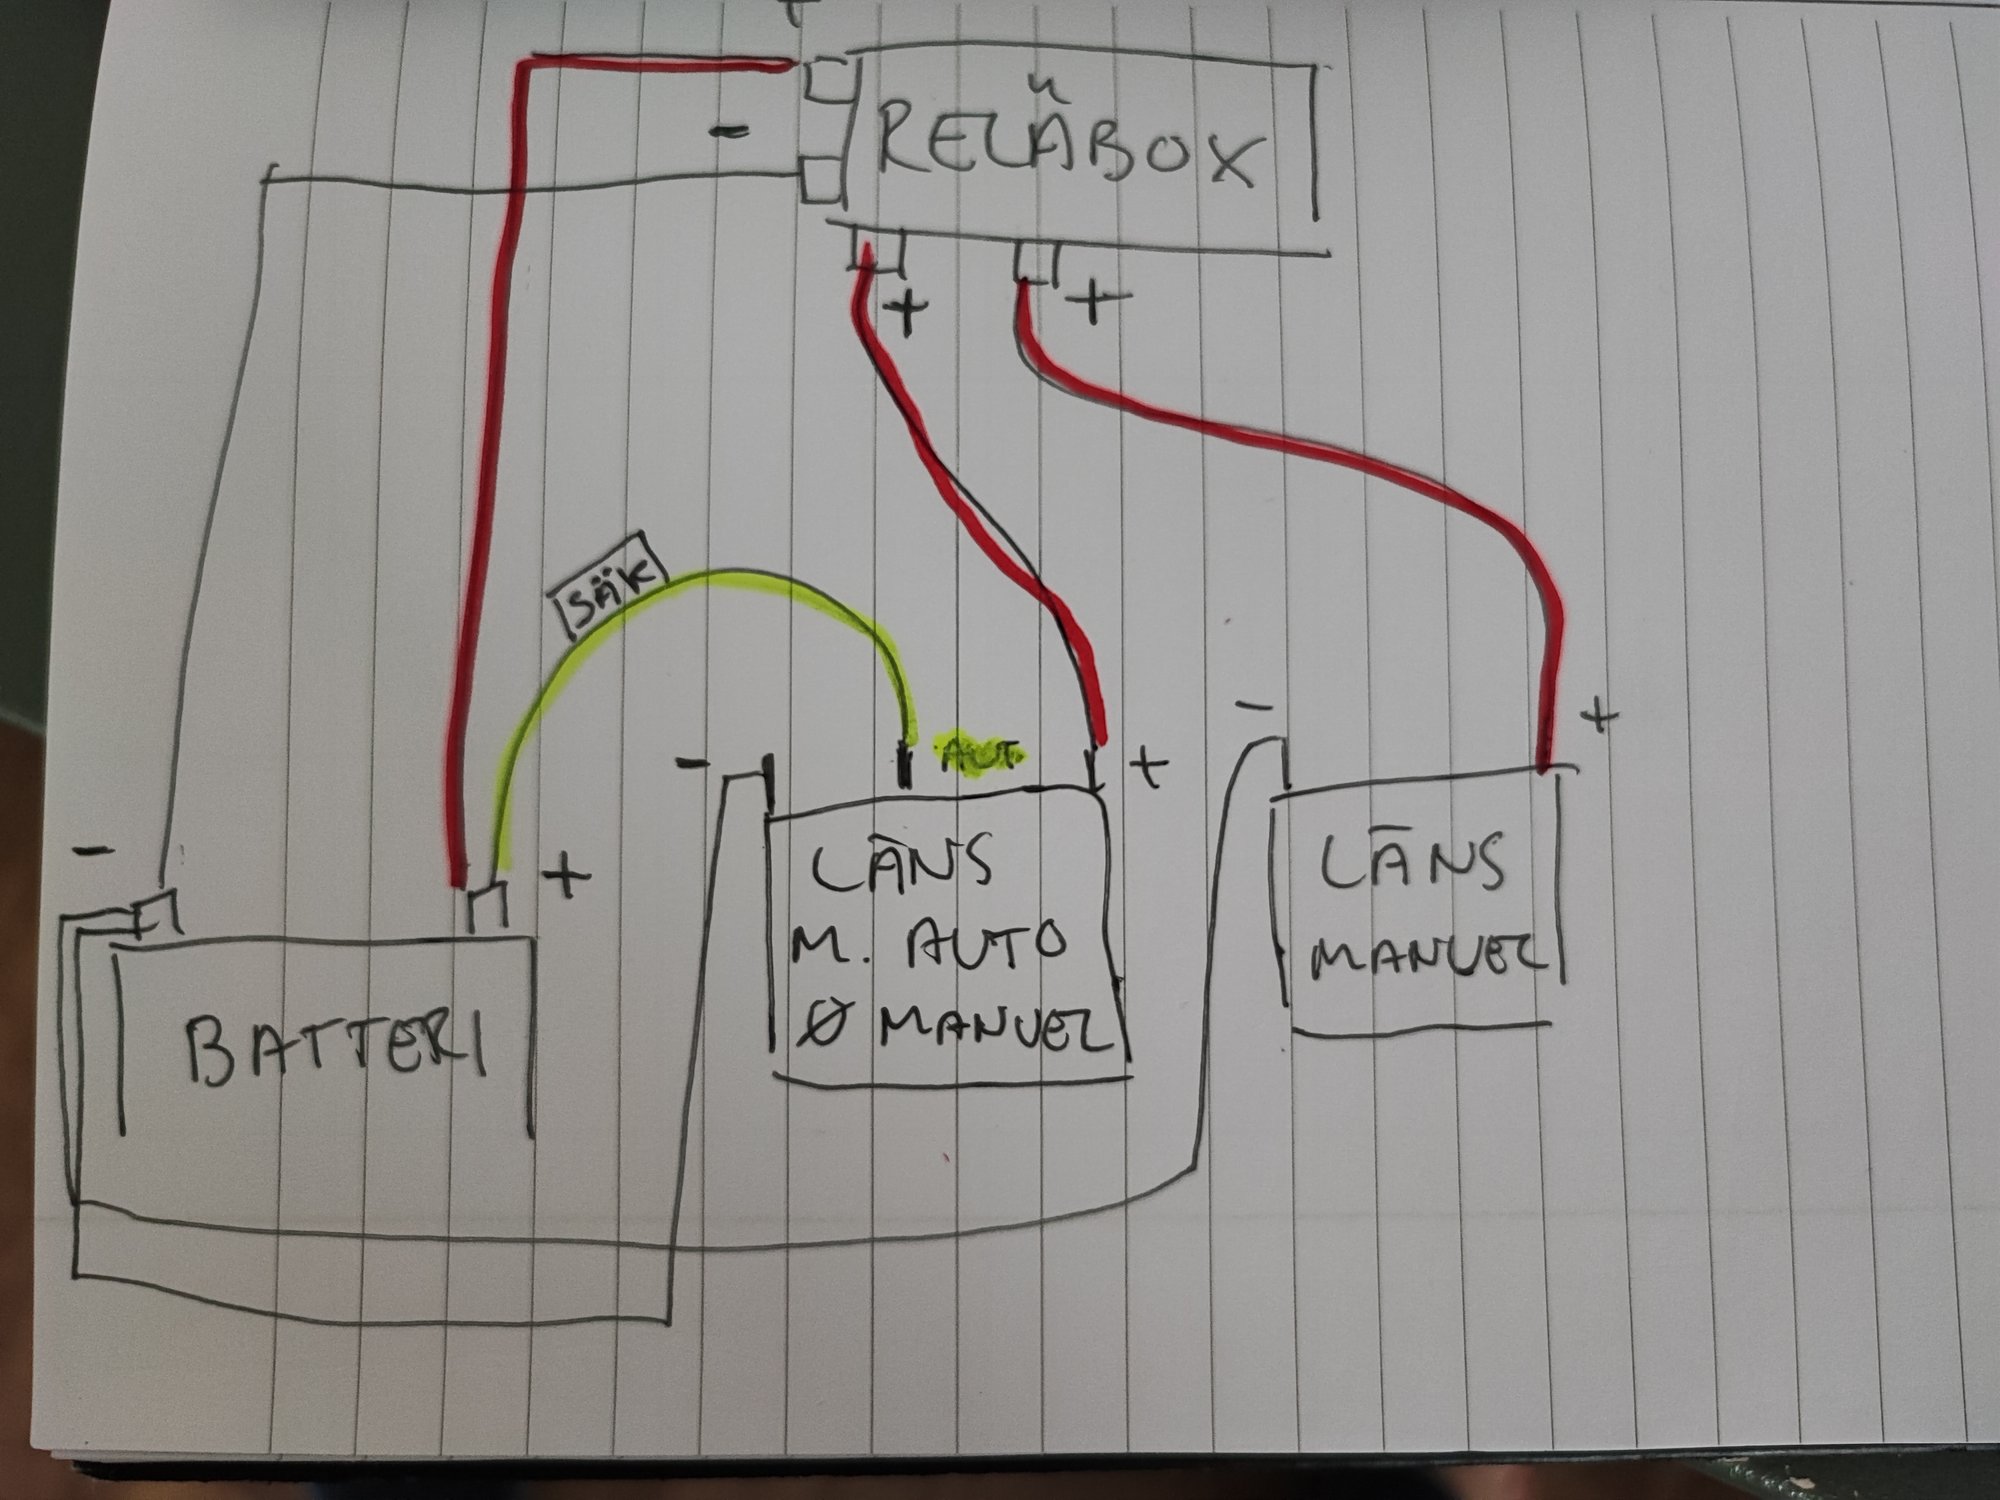 +
RELÄBOX
-
+ +
SÄK
- +
- AUT. +
- +
LÄNS
M. AUTO
Ø MANUEL
LÄNS
MANUEL
BATTERI